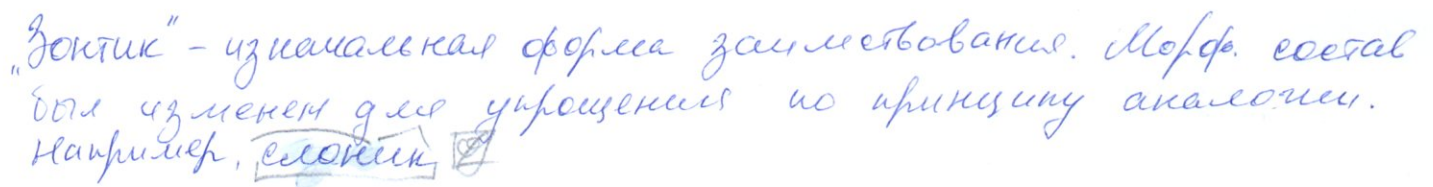 „Зонтик" – изначальная форма заимствования. Морф. состав
был изменен для упрощения по принципу аналогии.
Например, слоник